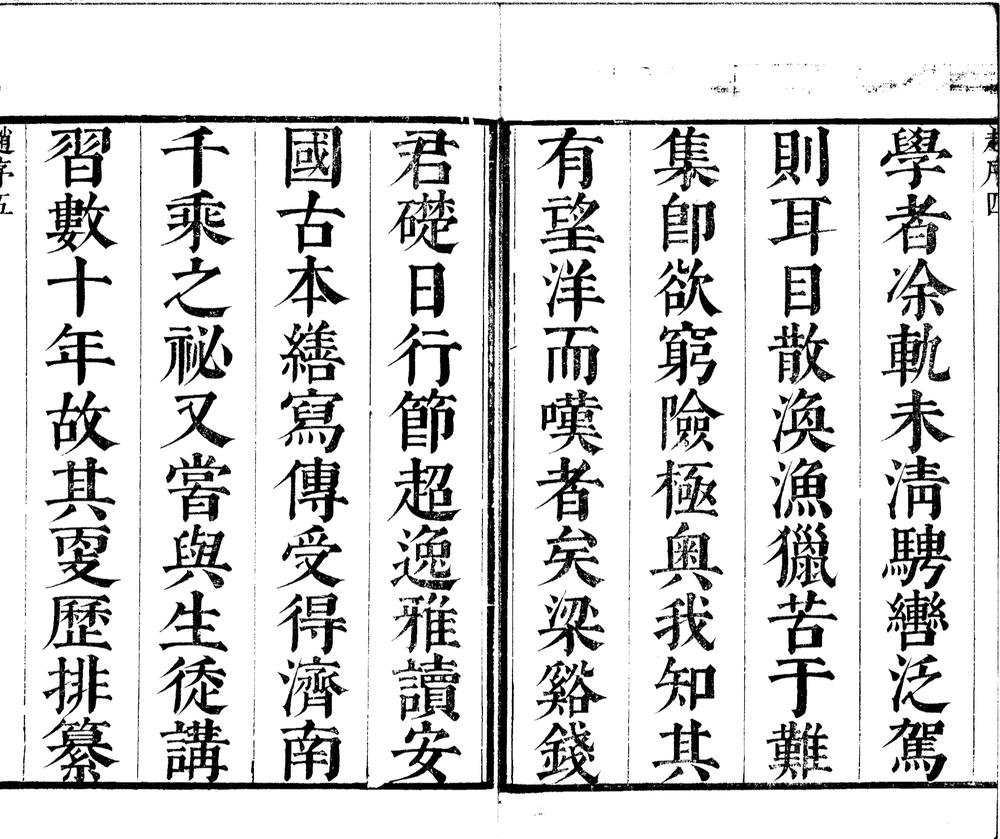 趙序四
學者涂軌未清騁轡泛駕
則耳目散渙漁獵苦于難
集卽欲窮險極奧我知其
有望洋而嘆者矣梁谿錢
君礎日行節超逸雅讀安
國古本繕寫傳受得濟南
千乘之祕又嘗與生徒講
習數十年故其叓歷排纂
趙序五